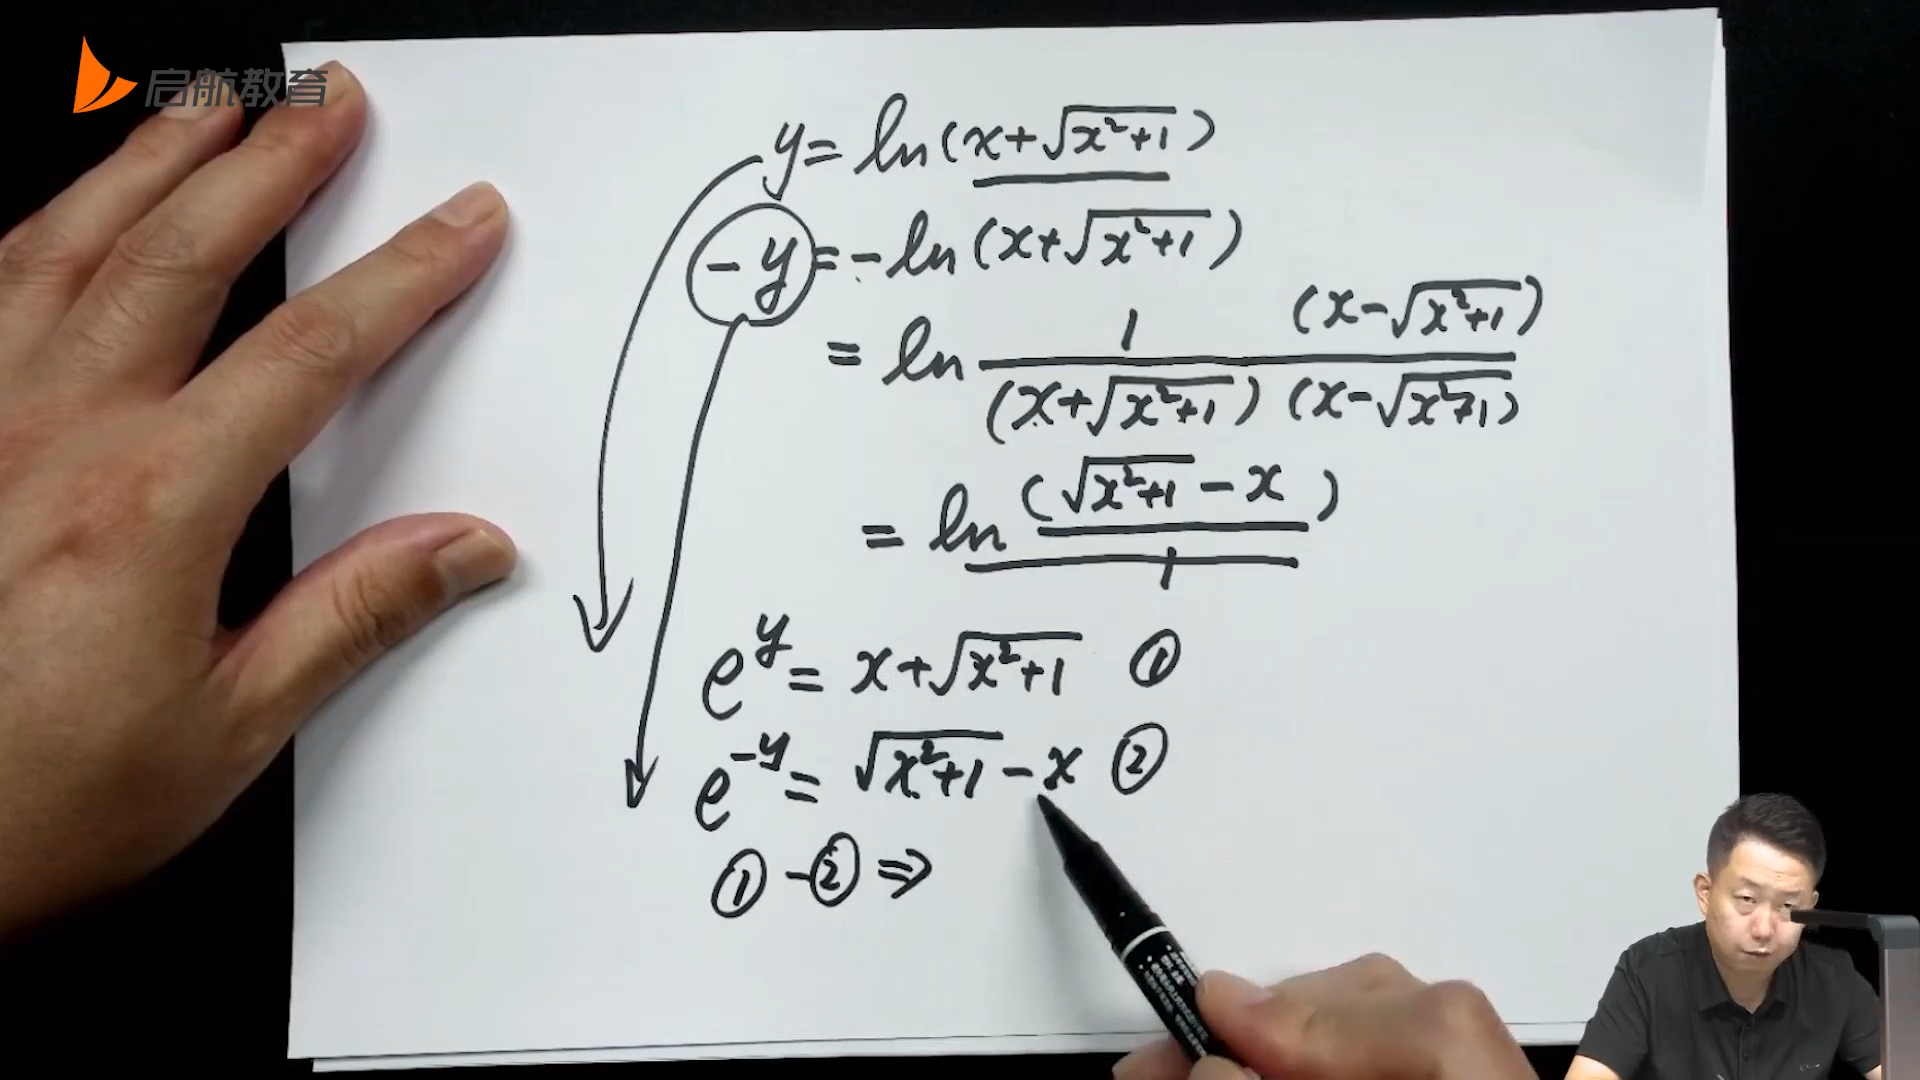 启航教育
y = ln(x+√(x²+1))
-y = -ln(x+√(x²+1))
= ln 1(x-√(x²+1)) / (x+√(x²+1))(x-√(x²+1))
= ln (√(x²+1) - x) / 1
e^y = x+√(x²+1) ①
e^-y = √(x²+1) - x ②
① - ② ⇒